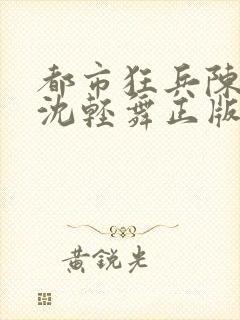 都市狂兵陳
沈輕舞正版
黄銳光